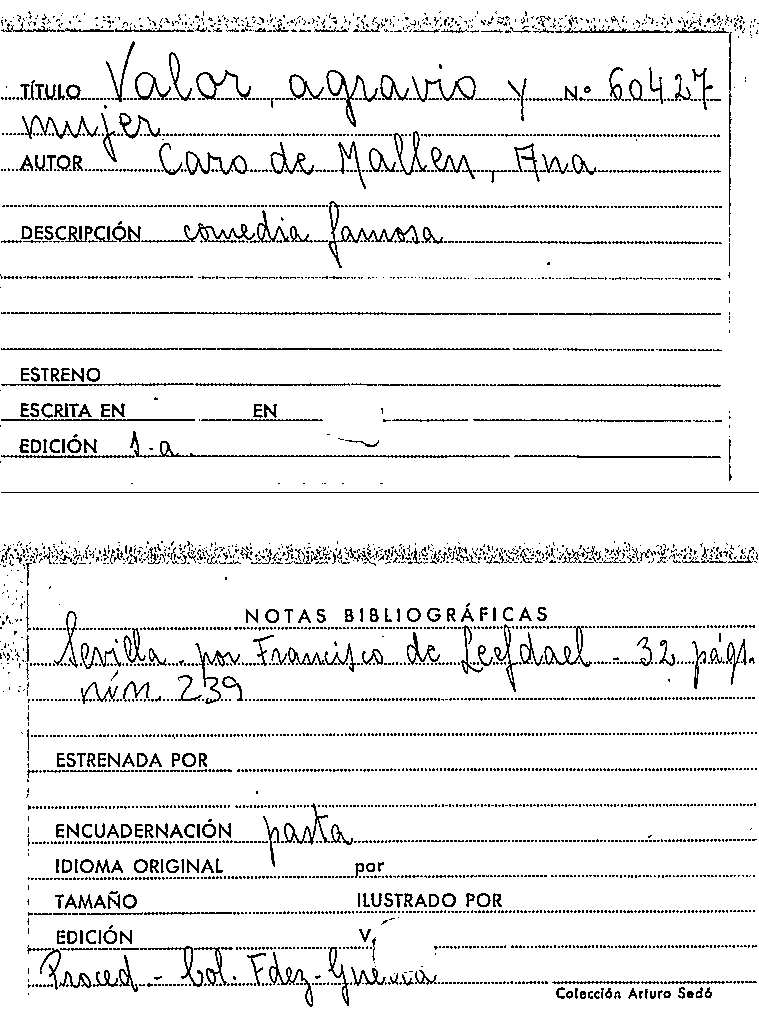 TÍTULO Valor, agravio y Nº 60427
mujer
AUTOR Caro de Mallen, Ana
DESCRIPCIÓN comedia famosa
ESTRENO
ESCRITA EN EN
EDICIÓN s.a.
NOTAS BIBLIOGRÁFICAS
Sevilla. por Francisco de Leefdael - 32 págs.
núm. 239
ESTRENADA POR
ENCUADERNACIÓN pasta
IDIOMA ORIGINAL por
TAMAÑO ILUSTRADO POR
EDICIÓN V.
Proced - Col. Fdez-Guerra
Colección Arturo Sedó